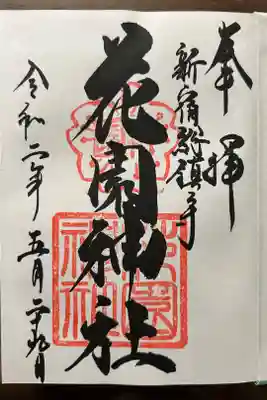 奉拝
新宿総鎮守
花園神社
令和二年五月二十九日
花園神社